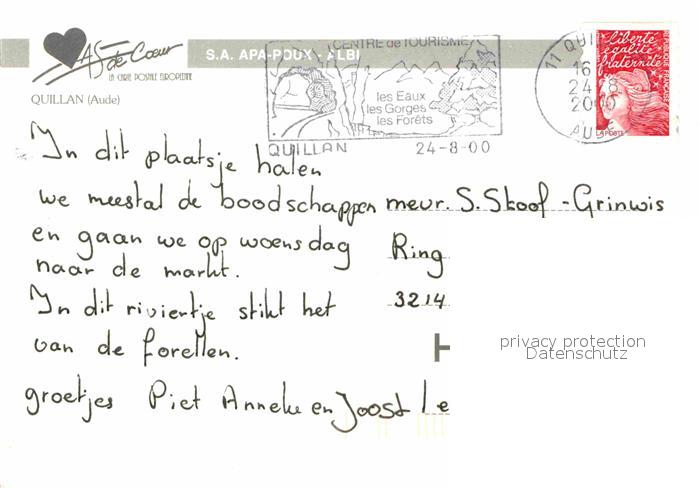 As de Cœur
LA CARTE POSTALE EUROPEENNE
S.A. APA-POUX - ALBI
QUILLAN (Aude)
CENTRE de TOURISME
les Eaux
les Gorges
les Forêts
QUILLAN 24-8-00
11 QUI
16
24-8
2000
AUDE
liberté
égalité
fraternité
REPUBLIQUE FRANÇAISE
LA POSTE
In dit plaatsje halen
we meestal de boodschappen
en gaan we op woensdag
naar de markt.
In dit riviertje stikt het
van de forellen.
groetjes Piet Anneke en Joost Le
mevr. S. Stoof - Grinwis
Ring
3214
privacy protection
Datenschutz